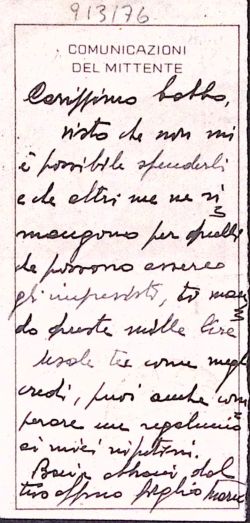 913/76
COMUNICAZIONI
DEL MITTENTE
Carissimo babbo,
visto che non mi
è possibile spenderli
e che altri me ne ri
mangono per quelli
che possono essere
gli imprevisti, ti man
do queste mille lire
Usale tu come megl
credi, puoi anche com
perare un regalucio
ai miei nipotini.
Bacioni dal
tuo figlio Mario